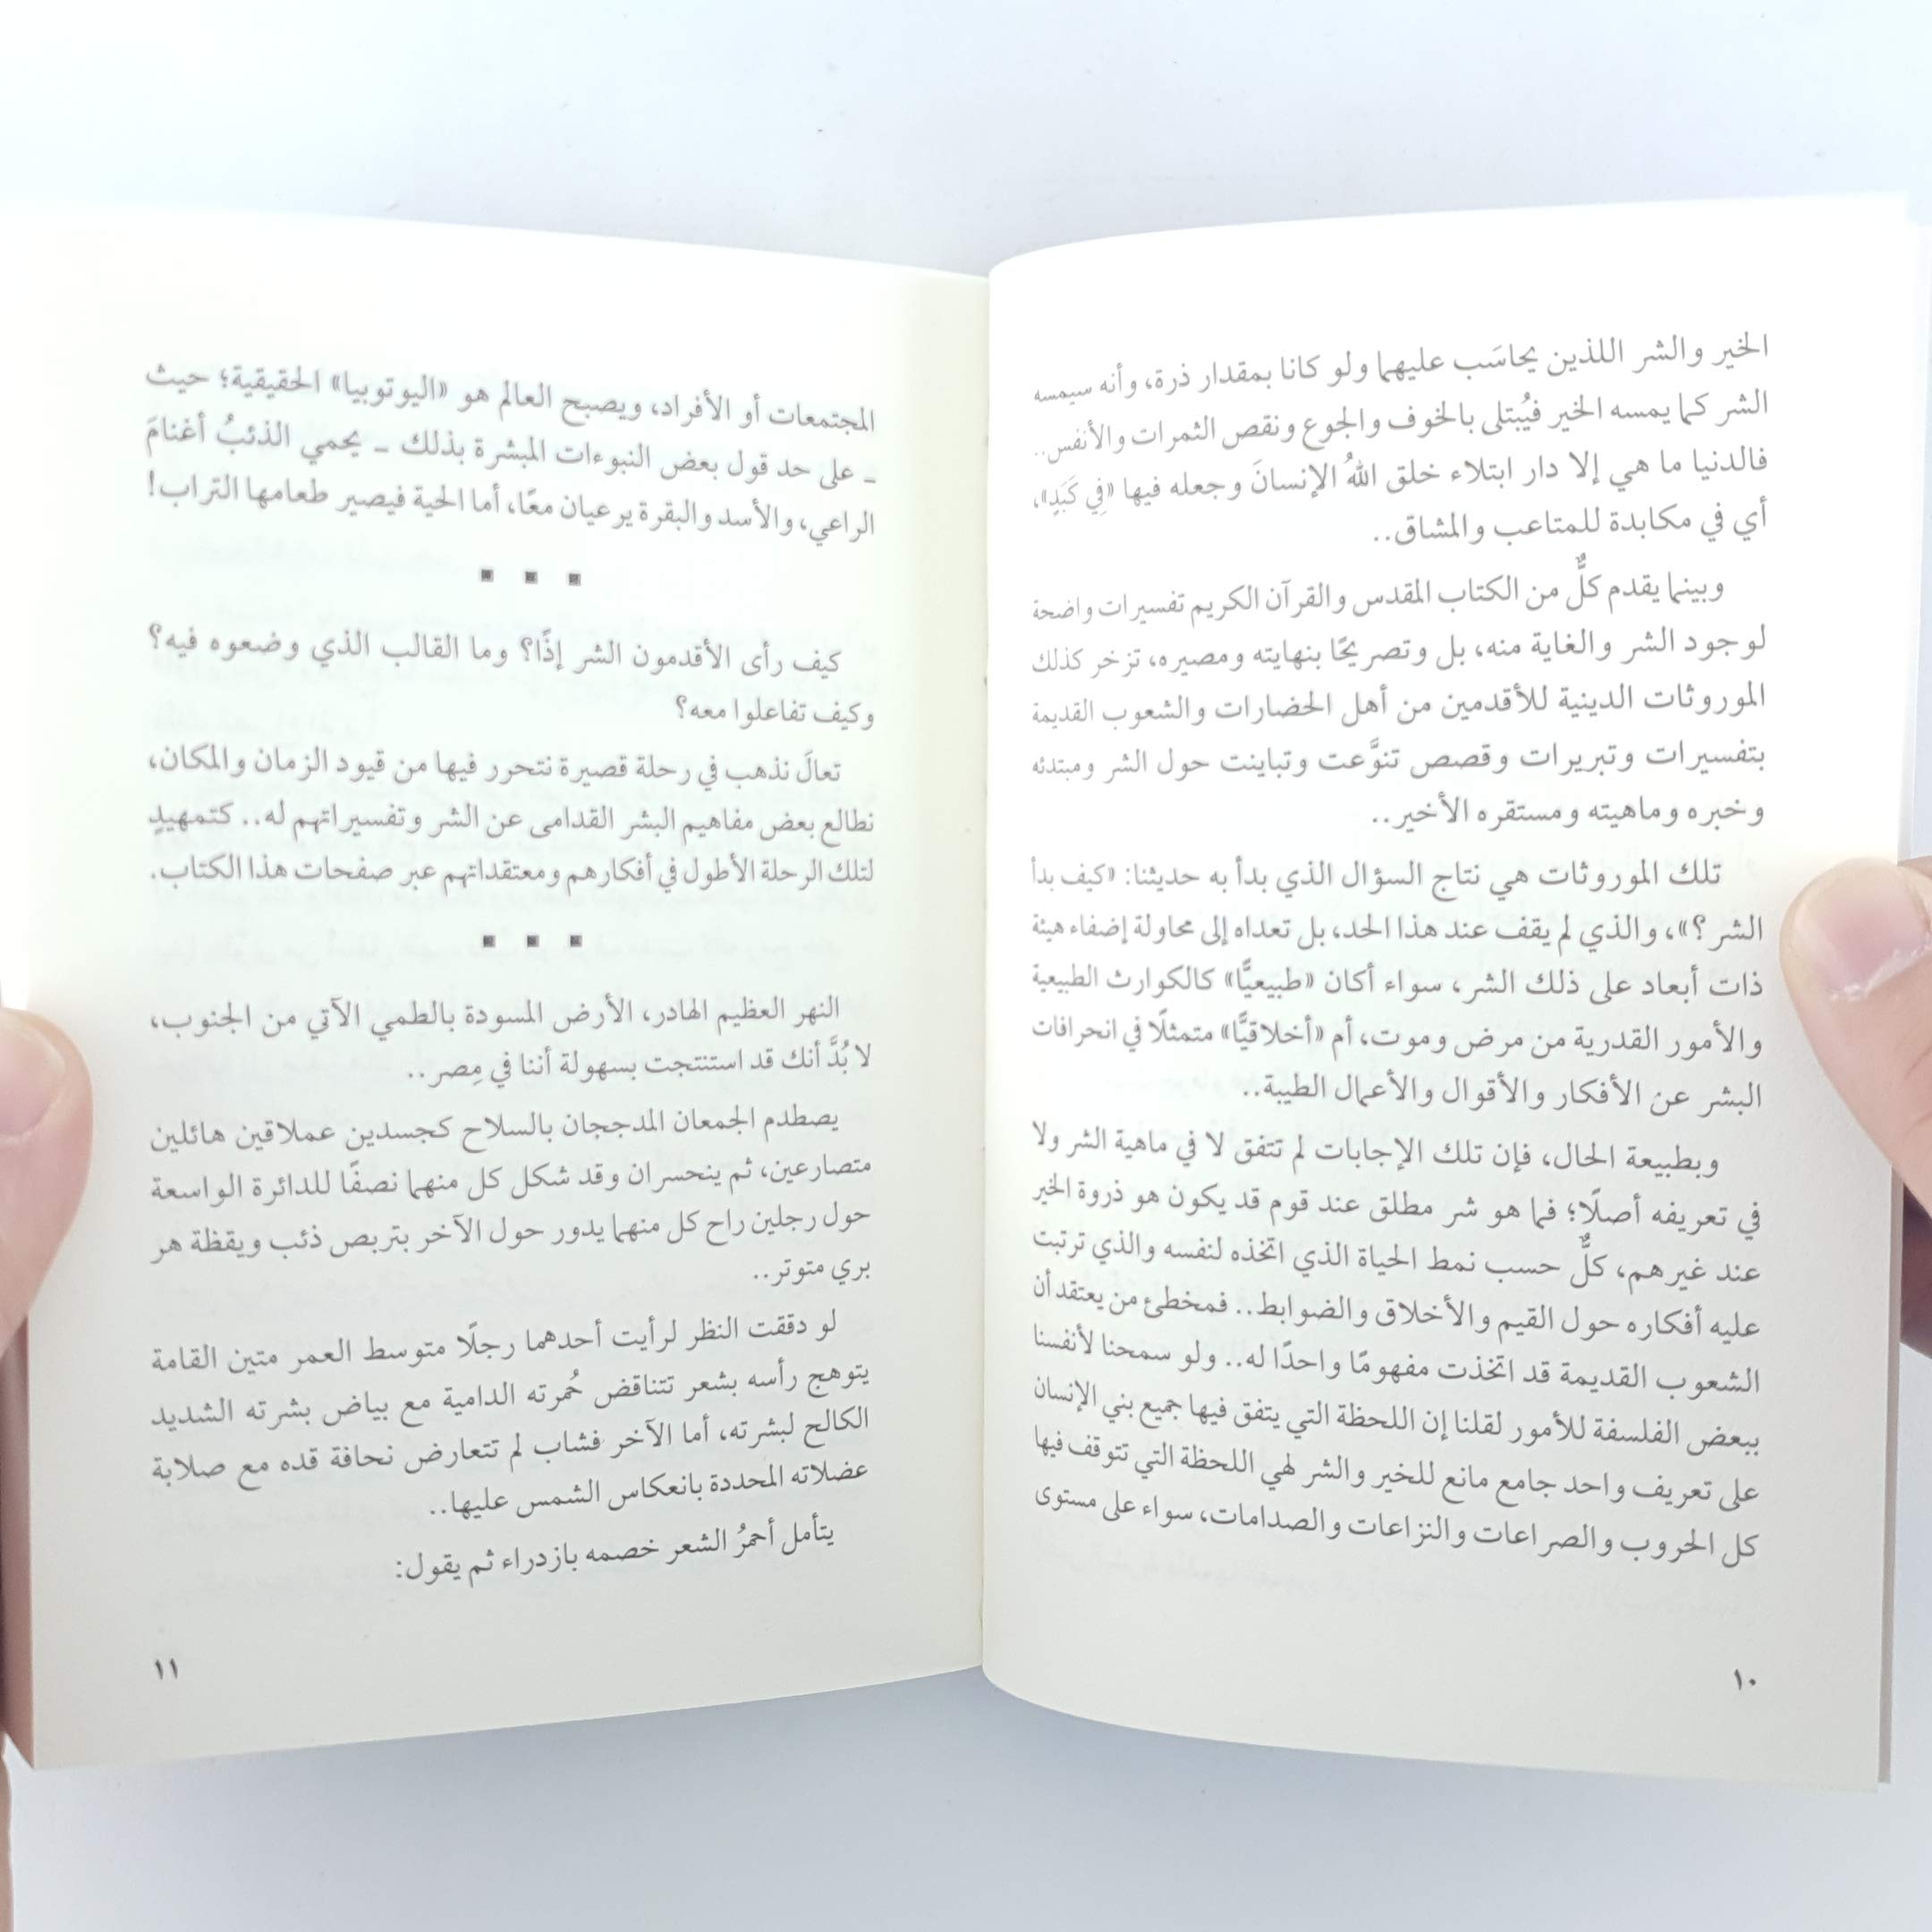 الخير والشر اللذين يحاسَب عليهما ولو كانا بمقدار ذرة، وأنه سيمسه
الشر كما يمسه الخير فيُبتلى بالخوف والجوع ونقص الثمرات والأنفس..
فالدنيا ما هي إلا دار ابتلاء خلق اللهُ الإنسانَ وجعله فيها «فِي كَبَدٍ»،
أي في مكابدة للمتاعب والمشاق..
وبينما يقدم كلٌّ من الكتاب المقدس والقرآن الكريم تفسيرات واضحة
لوجود الشر والغاية منه، بل وتصريحًا بنهايته ومصيره، تزخر كذلك
الموروثات الدينية للأقدمين من أهل الحضارات والشعوب القديمة
بتفسيرات وتبريرات وقصص تنوَّعت وتباينت حول الشر ومبتدئه
وخبره وماهيته ومستقره الأخير..
تلك الموروثات هي نتاج السؤال الذي بدأ به حديثنا: «كيف بدأ
الشر؟»، والذي لم يقف عند هذا الحد، بل تعداه إلى محاولة إضفاء هيئة
ذات أبعاد على ذلك الشر، سواء أكان «طبيعيًّا» كالكوارث الطبيعية
والأمور القدرية من مرض وموت، أم «أخلاقيًّا» متمثلًا في انحرافات
البشر عن الأفكار والأقوال والأعمال الطيبة..
وبطبيعة الحال، فإن تلك الإجابات لم تتفق لا في ماهية الشر ولا
في تعريفه أصلًا؛ فما هو شر مطلق عند قوم قد يكون هو ذروة الخير
عند غيرهم، كلٌّ حسب نمط الحياة الذي اتخذه لنفسه والذي ترتبت
عليه أفكاره حول القيم والأخلاق والضوابط.. فمخطئ من يعتقد أن
الشعوب القديمة قد اتخذت مفهومًا واحدًا له.. ولو سمحنا لأنفسنا
ببعض الفلسفة للأمور لقلنا إن اللحظة التي يتفق فيها جميع بني الإنسان
على تعريف واحد جامع مانع للخير والشر لهي اللحظة التي تتوقف فيها
كل الحروب والصراعات والنزاعات والصدامات، سواء على مستوى
١٠
المجتمعات أو الأفراد، ويصبح العالم هو «اليوتوبيا» الحقيقية؛ حيث
_ على حد قول بعض النبوءات المبشرة بذلك _ يحمي الذئبُ أغنامَ
الراعي، والأسد والبقرة يرعيان معًا، أما الحية فيصير طعامها التراب!
▪ ▪ ▪
كيف رأى الأقدمون الشر إذًا؟ وما القالب الذي وضعوه فيه؟
وكيف تفاعلوا معه؟
تعالَ نذهب في رحلة قصيرة نتحرر فيها من قيود الزمان والمكان،
نطالع بعض مفاهيم البشر القدامى عن الشر وتفسيراتهم له.. كتمهيدٍ
لتلك الرحلة الأطول في أفكارهم ومعتقداتهم عبر صفحات هذا الكتاب.
▪ ▪ ▪
النهر العظيم الهادر، الأرض المسودة بالطمي الآتي من الجنوب،
لا بُدَّ أنك قد استنتجت بسهولة أننا في مِصر..
يصطدم الجمعان المدججان بالسلاح كجسدين عملاقين هائلين
متصارعين، ثم ينحسران وقد شكل كل منهما نصفًا للدائرة الواسعة
حول رجلين راح كل منهما يدور حول الآخر بتربص ذئب ويقظة هر
بري متوتر..
لو دققت النظر لرأيت أحدهما رجلًا متوسط العمر متين القامة
يتوهج رأسه بشعر تتناقض حُمرته الدامية مع بياض بشرته الشديد
الكالح لبشرته، أما الآخر فشاب لم تتعارض نحافة قده مع صلابة
عضلاته المحددة بانعكاس الشمس عليها..
يتأمل أحمرُ الشعر خصمه بازدراء ثم يقول:
١١